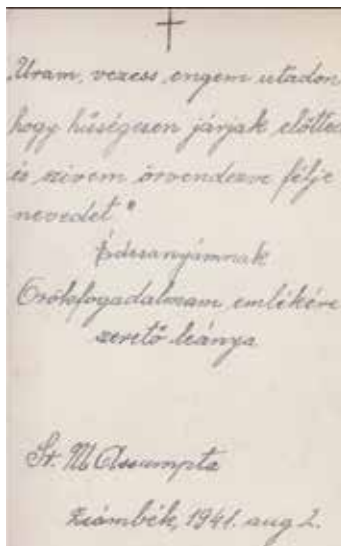 „Uram, vezess engem utadon
hogy hűségesen járjak előtted
és szívem örvendezve félje
nevedet."
Édesanyámnak
Örökfogadalmam emlékére
szerető leánya
Sr. M. Assumpta
Zsámbék, 1941. aug 2.